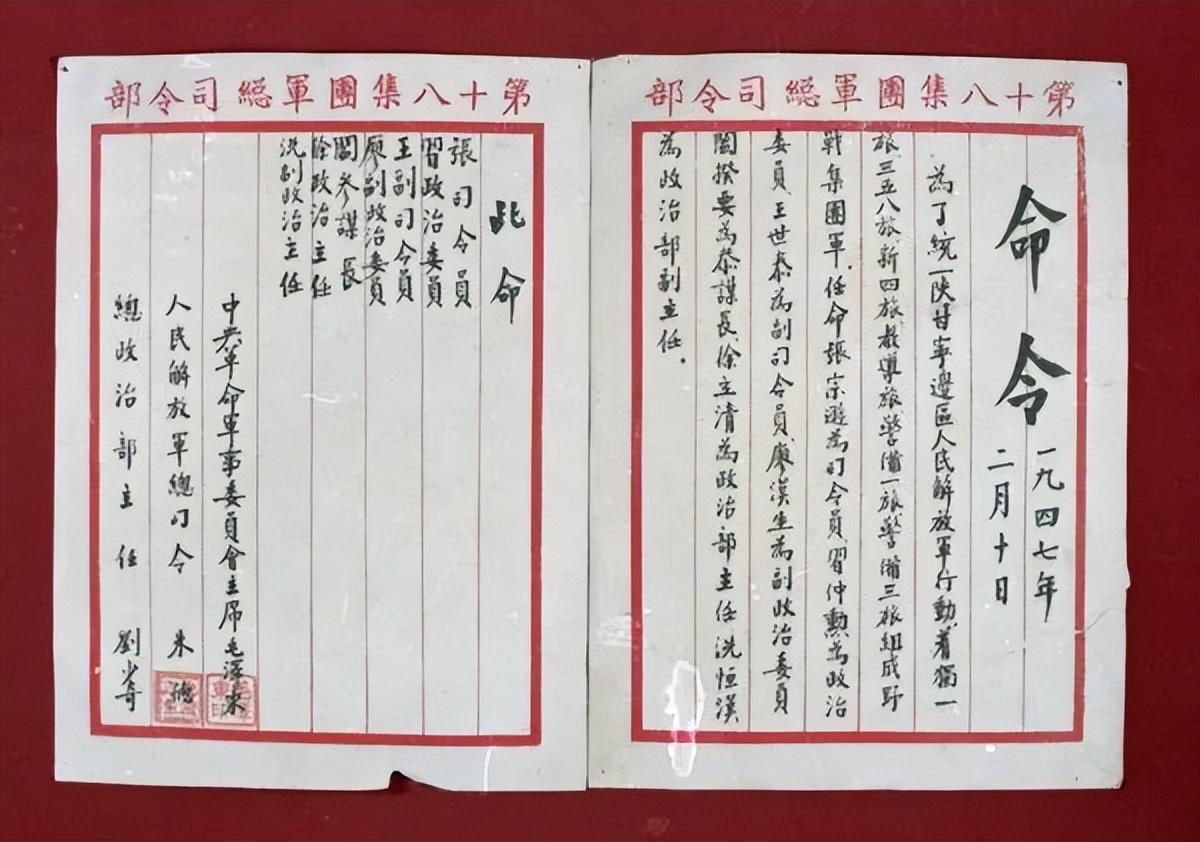 第十八集團軍總司令部
命令
一九四七年
二月十日
為了統一陝甘寧邊區人民解放軍行動，着獨一
旅、三五八旅、新四旅、教導旅、警備一旅、警備三旅組成野
戰集團軍，任命張宗遜為司令員、習仲勳為政治
委員、王世泰為副司令員、廖漢生為副政治委員、
閻揆要為叅謀長、徐立清為政治部主任、冼恒漢
為政治部副主任．
第十八集團軍總司令部
此命
張司令員
習政治委員
王副司令員
廖副政治委員
閻參謀長
徐政治主任
冼副政治主任
中共革命軍事委員會主席毛澤東
人民解放軍總司令 朱德
總政治部主任 劉少奇